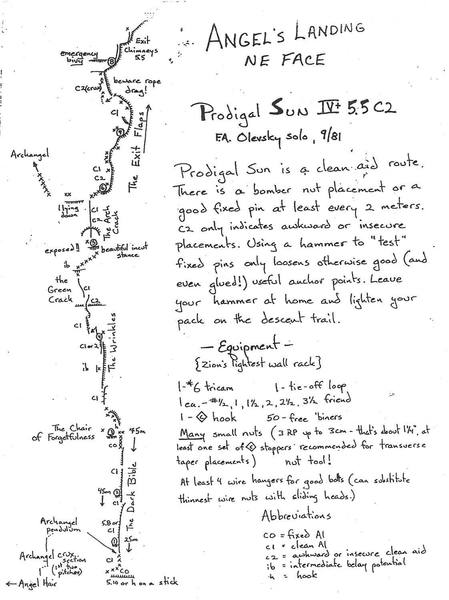 ANGEL'S LANDING
NE FACE
Prodigal Sun IV+ 5.5 C2
FA. Olevsky solo, 9/81
Prodigal Sun is a clean aid route.
There is a bomber nut placement or a
good fixed pin at least every 2 meters.
C2 only indicates awkward or insecure
placements. Using a hammer to "test"
fixed pins only loosens otherwise good (and
even glued!) useful anchor points. Leave
your hammer at home and lighten your
pack on the descent trail.
— Equipment —
{Zion's lightest wall rack}
1-#6 tricam 1- tie-off loop
1 ea. - #½, 1, 1½, 2, 2½, 3½ friend
1- hook 50-free 'biners
Many small nuts (3 RP up to 3cm - that's about 1¼", at
least one set of stoppers recommended for transverse
taper placements) nut tool!
At least 4 wire hangers for good bolts (can substitute
thinnest wire nuts with sliding heads.)
Abbreviations
C0 = fixed A1
C1 = clean A1
C2 = awkward or insecure clean aid
ib = intermediate belay potential
h = hook
Exit
Chimneys
5.5
emergency
bivy
beware rope
drag!
C2(crux)
C1
The Exit Flaps
C1
Archangel
C1
C2
lying
down
C1
C1
The Arch
Crack
exposed!!
beautiful incut
stance
ib
the
Green
Crack
C1
C2
C1
C1 or 2
The Wrinkles
ib
C1
C1
The Chair
of Forgetfulness
C1
C0
45m
C1
The Dark Bible
45m
C1
5.8 or
C1
25m
Archangel
pendulum
Archangel crux
section
(1st two
pitches)
C1
C0
Angel Hair
5.10 or h on a stick